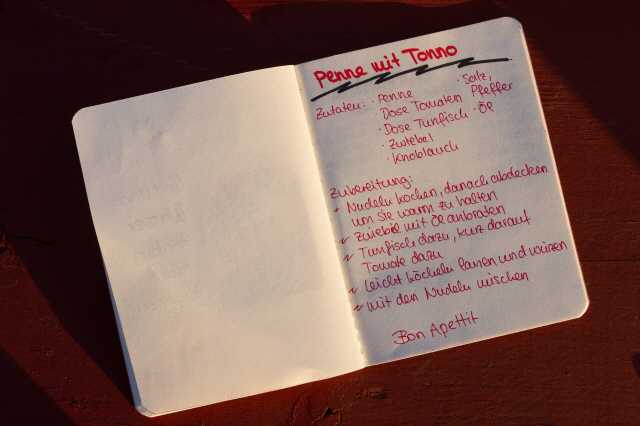 Penne mit Tonno
Zutaten: · Penne · Salz,
Dose Tomaten Pfeffer
· Dose Tunfisch · Öl
· Zwiebel
· Knoblauch
Zubereitung:
Nudeln kochen, danach abdecken
um sie warm zu halten
Zwiebel mit Öl anbraten
Tunfisch dazu, kurz darauf
Tomate dazu
Leicht köcheln lassen und würzen
mit den Nudeln mischen
Bon Apettit